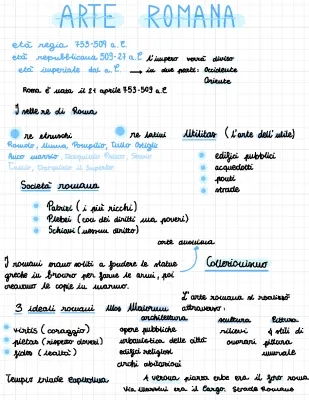 ARTE ROMANA
età regia 753-509 a.C
età repubblicana 509-27 a.C
l'impero verrà diviso
età imperiale dal a.C. → in due parti: Occidente
Oriente
Roma è nata il 21 aprile 753-509 a.C
I sette re di Roma
re etruschi
re latini
Utilitas (l'arte dell'utile)
Romolo, Numa Pompilio, Tullo Ostilio
Anco marzio, Tarquinio Prisco, Servio
Tullio, Tarquinio il Superbo
edifici pubblici
acquedotti
ponti
strade
Società romana
Patrizi (i più ricchi)
Plebei (con dei diritti ma poveri)
Schiavi (nessun diritto)
arte
I romani erano soliti a fondere le statue
greche in bronzo per farne le armi, poi
creavano le copie in marmo.
Collezionismo
L'arte romana si realizzò
attraverso:
3 ideali romani
Mos Maiorum
architettura
scultura
pittura
virtus (coraggio)
pietas (rispetto doveri)
fides (lealtà)
opere pubbliche
urbanistica delle città
edifici religiosi
archi abitazioni
rilievi
onorari
4 stili di
pittura
murale
Tempio triade Capitolina
A verona piazza erbe era il foro romano
Via mazzini era il cargo. Strada Romana